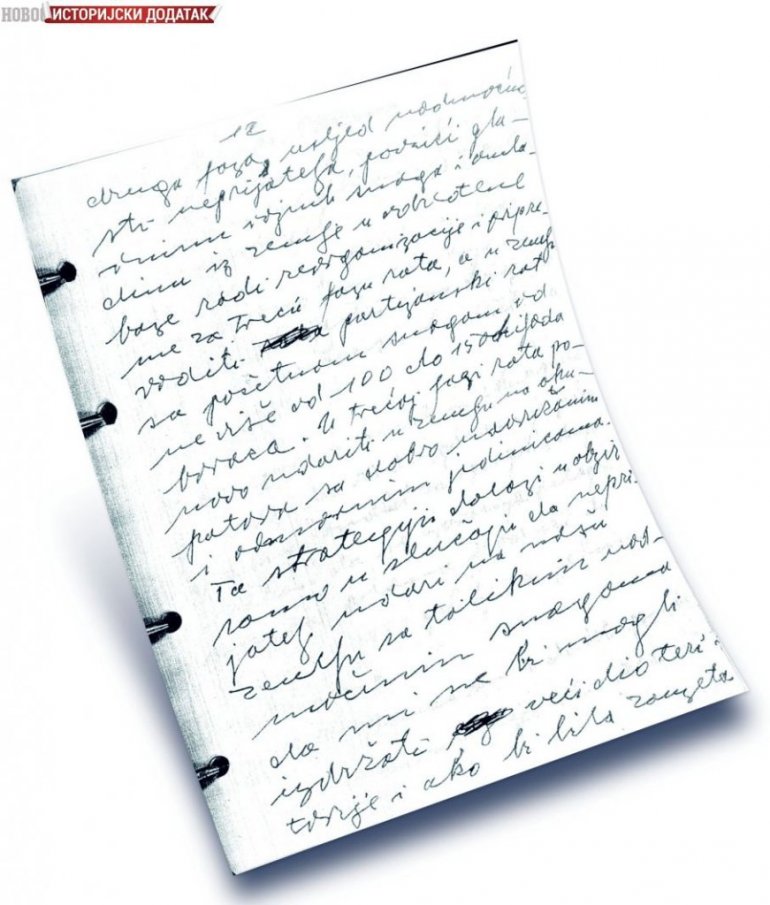 НОВО ИСТОРИЈСКИ ДОДАТАК
12
druga faza, usljed nadmoćno
sti neprijatelja, povući gla
vninu vojnih snaga i omla
dinu iz zemlje u određene
baze radi reorganizacije i pripre
me za treću fazu rata, a u zemlji
voditi partizanski rat
sa početnom snagom od
ne više od 100 do 150 hiljada
boraca. U trećoj fazi rata po
novo udariti u zemlju na oku
patora sa dobro naoružanim
i odmornim jedinicama.
Ta strategija dolazi u obzir
samo u slučaju da nepri
jatelj udari na našu
zemlju sa tolikim nad
moćnim snagama
da mi ne bi mogli
izdržati veći dio teri
torije i ako bi bila zauzeta